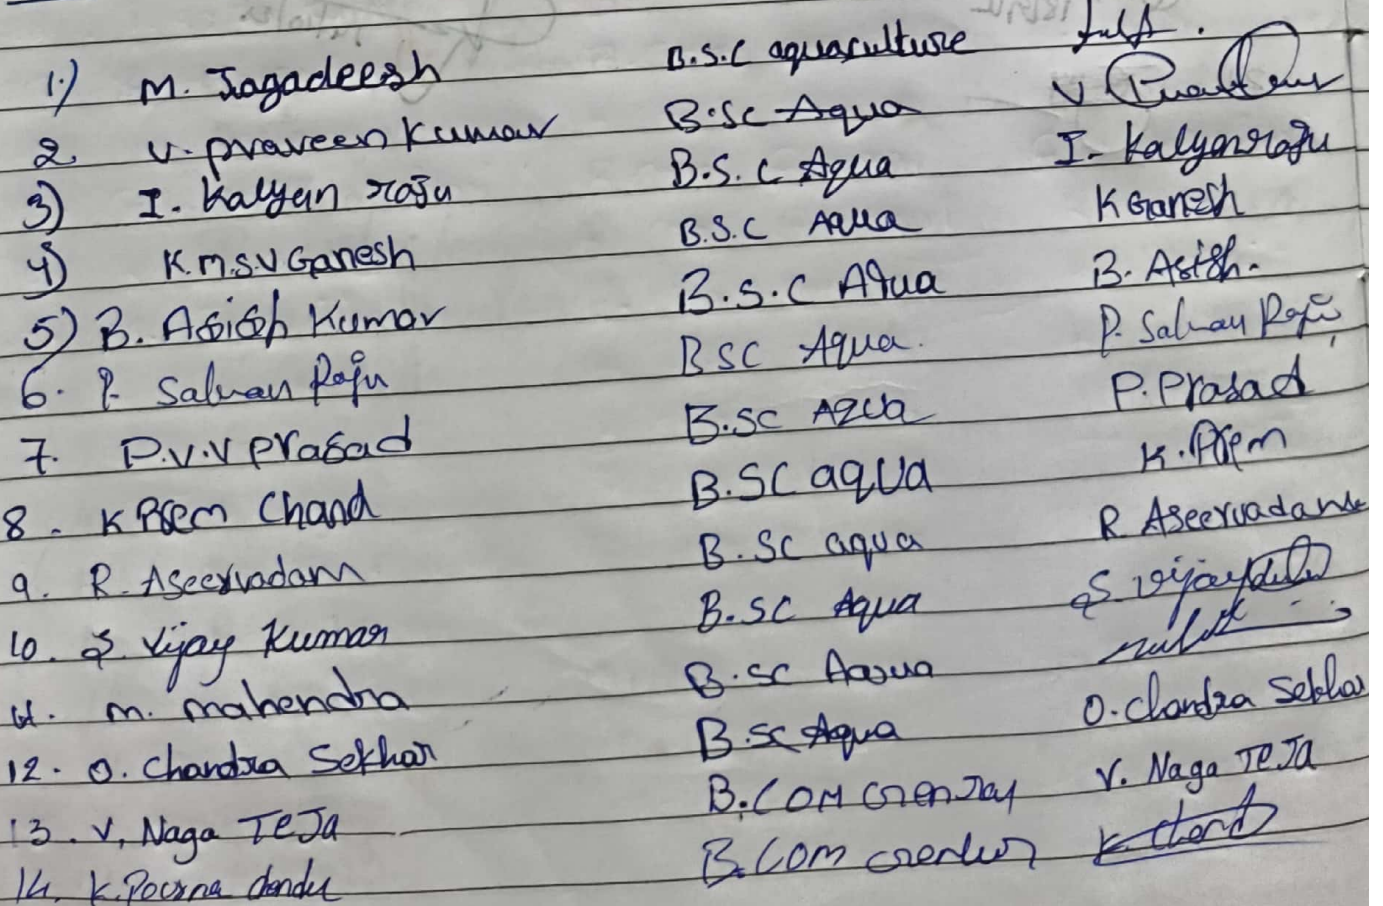 1.) M. Jagadeesh B.S.C aquaculture
2. V. Praveen Kumar B.SC Aqua V
3) I. Kalyan raju B.S.C Aqua I. Kalyanraju
4) K.M.S.V Ganesh B.S.C Aqua K Ganesh
5) B. Asish Kumar B.S.C Aqua B. Asish.
6. P. Salman Raju BSC Aqua. P. Salman Raju
7. P.V.V Prasad B.SC Aqua P. Prasad
8. K Prem Chand B.SC aqua K. Prem
9. R. Aseervadam B.SC aqua R Aseervadam
10. S. Vijay Kumar B.SC Aqua S Vijay
11. M. Mahendra B.SC Aqua
12. O. Chandra Sekhar B.SC Aqua O. Chandra Sekhar
13. V. Naga TeJa B.COM V. Naga TeJa
14. K. Pourna B.COM K